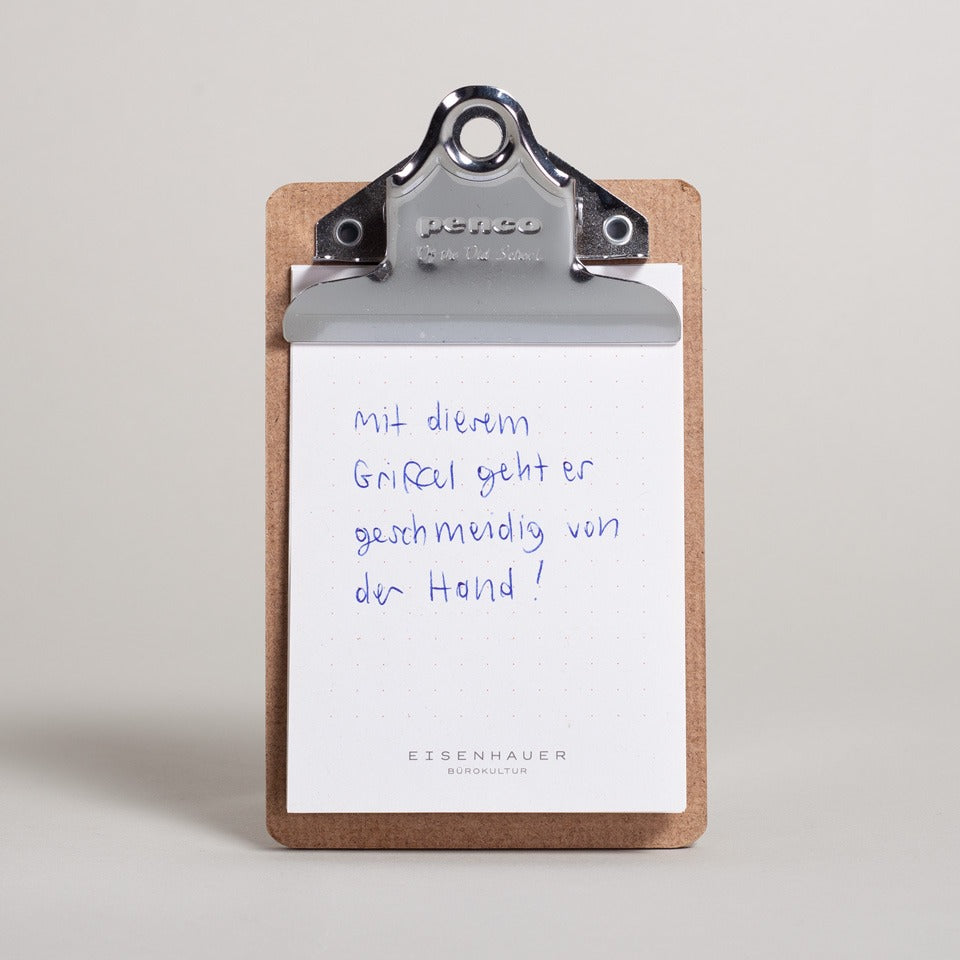 penco
Of the Old School
mit diesem
Griffel geht es
geschmeidig von
der Hand!
EISENHAUER
BÜROKULTUR